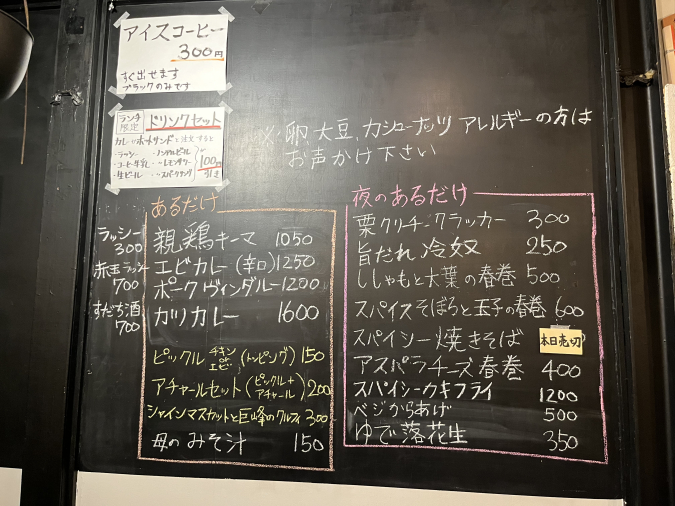 アイスコーヒー
300円
すぐ出せます
ブラックのみです
ランチ限定 ドリンクセット
カレーorホットサンドと注文すると
・ラッシー ・ノンアルビール
・コーヒー牛乳 ・レモンサワー
・生ビール ・スパークリング
100円引き
※ 卵、大豆、カシューナッツ アレルギーの方は
お声かけ下さい
ラッシー
300
赤玉ラッシー
700
すだち酒
700
あるだけ
親鶏キーマ 1050
エビカレー(辛口)1250
ポークヴィンダルー1200
カツカレー 1600
ピックル チキン or エビ (トッピング) 150
アチャールセット(ピックル+アチャール) 200
シャインマスカットと巨峰のクルフィ 300
母のみそ汁 150
夜のあるだけ
栗クリチークラッカー 300
旨だれ冷奴 250
ししゃもと大葉の春巻 500
スパイスそぼろと玉子の春巻 600
スパイシー焼きそば 本日売切
アスパラチーズ春巻 400
スパイシーカキフライ 1200
ベジからあげ 500
ゆで落花生 350